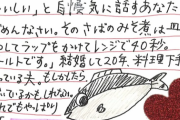 いしい」と自慢気に話すあなた
めんなさい。そのさばのみそ煮は皿
してラップをかけてレンジで40秒。
ールトです」。結婚して20年、料理下手
っている夫。もしかしたら
ているかもしれない。
れでもやっぱり